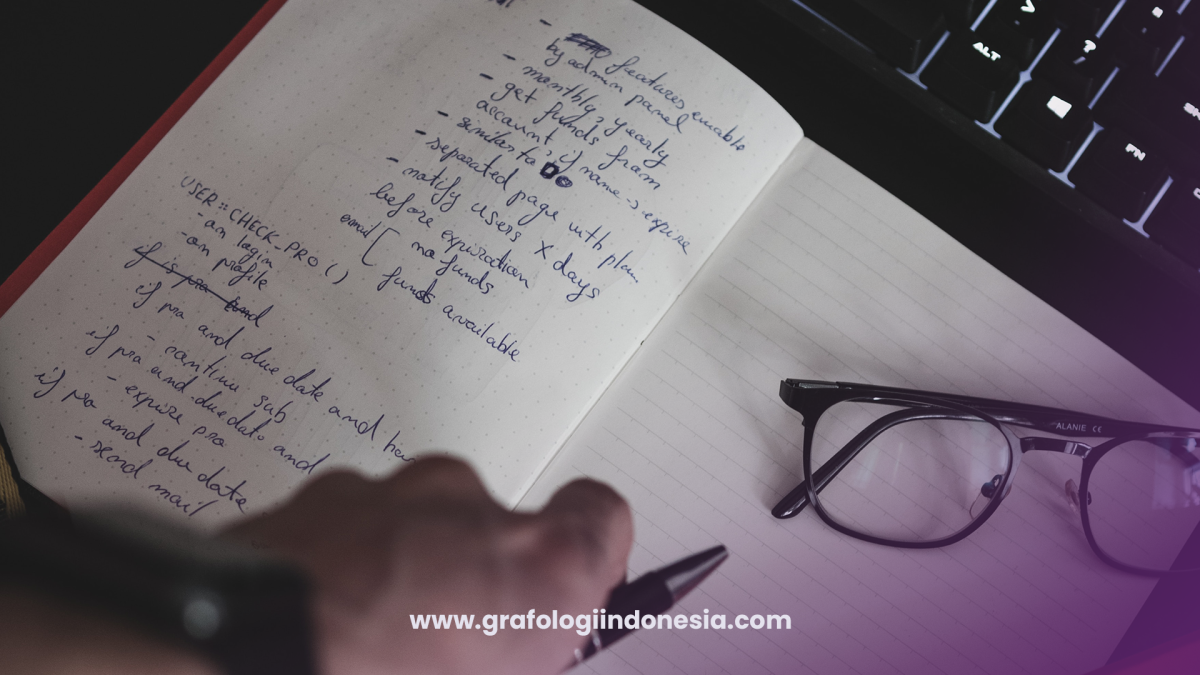 - features enable
by admin panel
- monthly, yearly
- get funds from
account, if name -> expire
- similar to
- separated page with plan
- notify users X days
before expiration
email [ no funds
funds available
USER::CHECK_PRO ()
- on login
- on profile
if is pro and
if pro and due date and
- continue sub
if pro and due date and
- expire pro
if pro and due date
- send mail
ALT
?
FN
ALANIE CE
www.grafologiindonesia.com